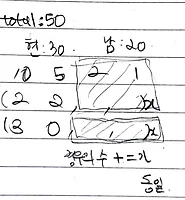 total : 50
현 : 30 남 : 20
10 5 2 1
(2 2 x
(3 0 , x
경우의 수 += x
동일